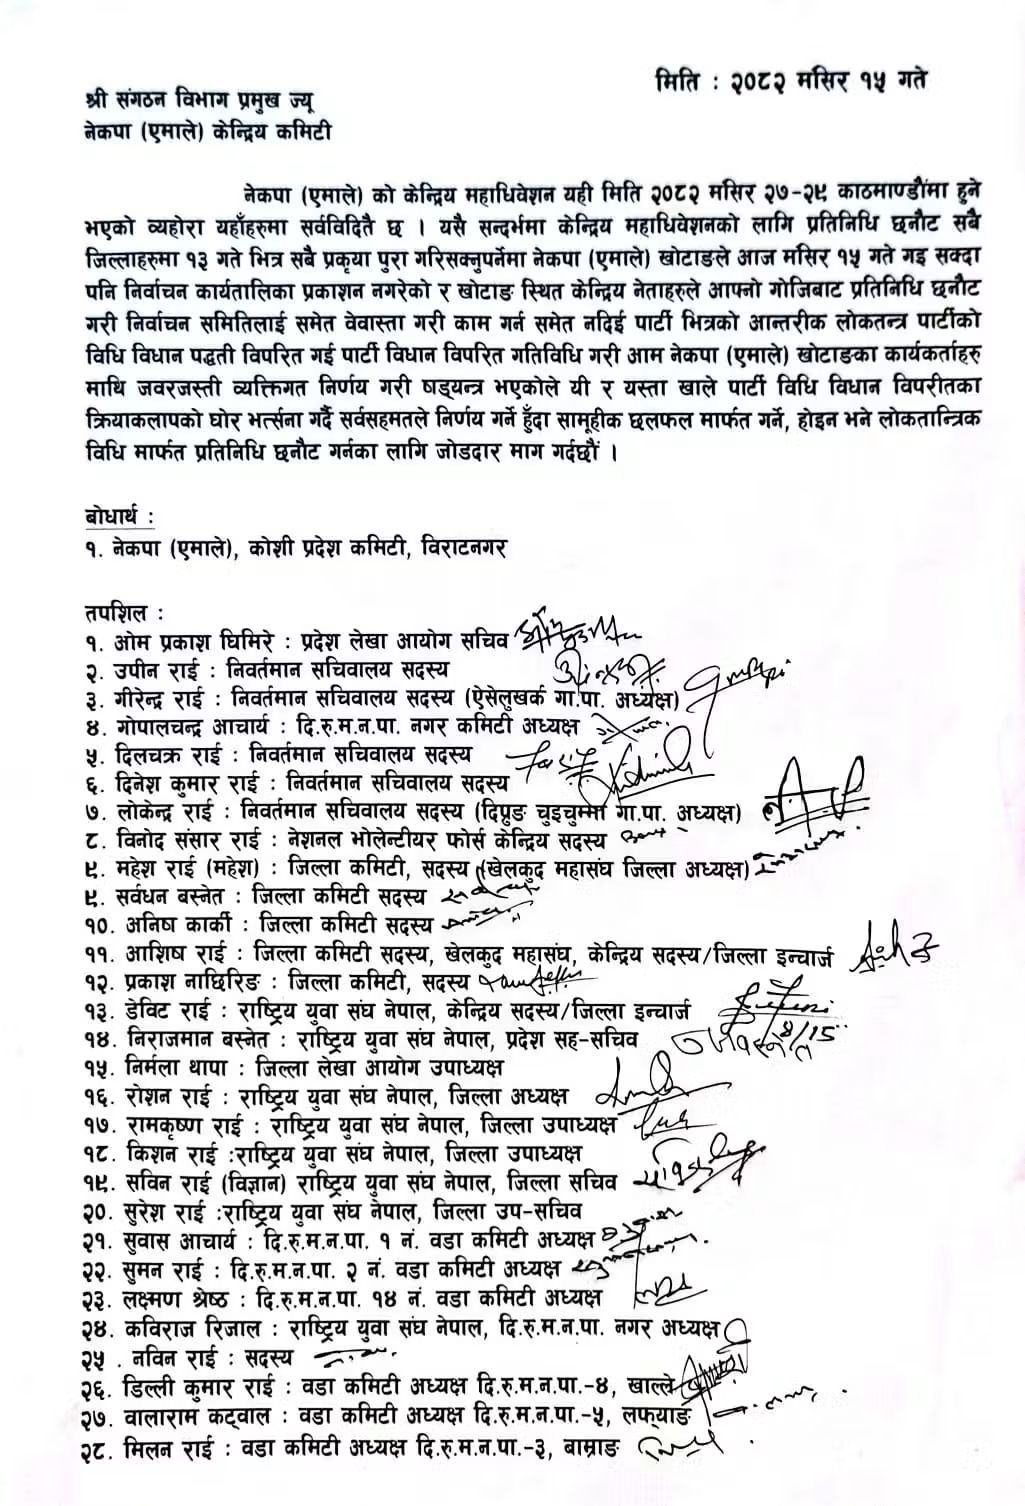 मिति : २०८२ मसिर १५ गते
श्री संगठन विभाग प्रमुख ज्यू
नेकपा (एमाले) केन्द्रिय कमिटी
नेकपा (एमाले) को केन्द्रिय महाधिवेशन यही मिति २०८२ मसिर २७-२९ काठमाण्डौंमा हुने
भएको व्यहोरा यहाँहरुमा सर्वविदितै छ । यसै सन्दर्भमा केन्द्रिय महाधिवेशनको लागि प्रतिनिधि छनौट सबै
जिल्लाहरुमा १३ गते भित्र सबै प्रकृया पुरा गरिसक्नुपर्नेमा नेकपा (एमाले) खोटाङले आज मसिर १५ गते गइ सक्दा
पनि निर्वाचन कार्यतालिका प्रकाशन नगरेको र खोटाङ स्थित केन्द्रिय नेताहरुले आफ्नो गोजिबाट प्रतिनिधि छनौट
गरी निर्वाचन समितिलाई समेत वेवास्ता गरी काम गर्न समेत नदिई पार्टी भित्रको आन्तरीक लोकतन्त्र पार्टीको
विधि विधान पद्धती विपरित गई पार्टी विधान विपरित गतिविधि गरी आम नेकपा (एमाले) खोटाङका कार्यकर्ताहरु
माथि जवरजस्ती व्यक्तिगत निर्णय गरी षड्यन्त्र भएकोले यी र यस्ता खाले पार्टी विधि विधान विपरीतका
क्रियाकलापको घोर भर्त्सना गर्दै सर्वसहमतले निर्णय गर्ने हुँदा सामूहीक छलफल मार्फत गर्ने, होइन भने लोकतान्त्रिक
विधि मार्फत प्रतिनिधि छनौट गर्नका लागि जोडदार माग गर्दछौं ।
बोधार्थ :
१. नेकपा (एमाले), कोशी प्रदेश कमिटी, विराटनगर
तपशिल :
१. ओम प्रकाश घिमिरे : प्रदेश लेखा आयोग सचिव
२. उपीन राई : निवर्तमान सचिवालय सदस्य
३. गीरेन्द्र राई : निवर्तमान सचिवालय सदस्य (ऐसेलुखर्क गा.पा. अध्यक्ष)
४. गोपालचन्द्र आचार्य : दि.रु.म.न.पा. नगर कमिटी अध्यक्ष
५. दिलचक्र राई : निवर्तमान सचिवालय सदस्य
६. दिनेश कुमार राई : निवर्तमान सचिवालय सदस्य
७. लोकेन्द्र राई : निवर्तमान सचिवालय सदस्य (दिप्रुङ चुइचुम्मा गा.पा. अध्यक्ष)
८. विनोद संसार राई : नेशनल भोलेन्टीयर फोर्स केन्द्रिय सदस्य
९. महेश राई (महेश) : जिल्ला कमिटी, सदस्य (खेलकुद महासंघ जिल्ला अध्यक्ष)
९. सर्वधन बस्नेत : जिल्ला कमिटी सदस्य
१०. अनिष कार्की : जिल्ला कमिटी सदस्य
११. आशिष राई : जिल्ला कमिटी सदस्य, खेलकुद महासंघ, केन्द्रिय सदस्य/जिल्ला इन्चार्ज
१२. प्रकाश नाछिरिङ : जिल्ला कमिटी, सदस्य
१३. डेविट राई : राष्ट्रिय युवा संघ नेपाल, केन्द्रिय सदस्य/जिल्ला इन्चार्ज
१४. निराजमान बस्नेत : राष्ट्रिय युवा संघ नेपाल, प्रदेश सह-सचिव
१५. निर्मला थापा : जिल्ला लेखा आयोग उपाध्यक्ष
१६. रोशन राई : राष्ट्रिय युवा संघ नेपाल, जिल्ला अध्यक्ष
१७. रामकृष्ण राई : राष्ट्रिय युवा संघ नेपाल, जिल्ला उपाध्यक्ष
१८. किशन राई :राष्ट्रिय युवा संघ नेपाल, जिल्ला उपाध्यक्ष
१९. सविन राई (विज्ञान) राष्ट्रिय युवा संघ नेपाल, जिल्ला सचिव
२०. सुरेश राई :राष्ट्रिय युवा संघ नेपाल, जिल्ला उप-सचिव
२१. सुवास आचार्य : दि.रु.म.न.पा. १ नं. वडा कमिटी अध्यक्ष
२२. सुमन राई : दि.रु.म.न.पा. २ नं. वडा कमिटी अध्यक्ष
२३. लक्ष्मण श्रेष्ठ : दि.रु.म.न.पा. १४ नं. वडा कमिटी अध्यक्ष
२४. कविराज रिजाल : राष्ट्रिय युवा संघ नेपाल, दि.रु.म.न.पा. नगर अध्यक्ष
२५ . नविन राई : सदस्य
२६. डिल्ली कुमार राई : वडा कमिटी अध्यक्ष दि.रु.म.न.पा.-४, खाल्ले
२७. वालाराम कट्वाल : वडा कमिटी अध्यक्ष दि.रु.म.न.पा.-५, लफ्याङ
२८. मिलन राई : वडा कमिटी अध्यक्ष दि.रु.म.न.पा.-३, बाम्राङ